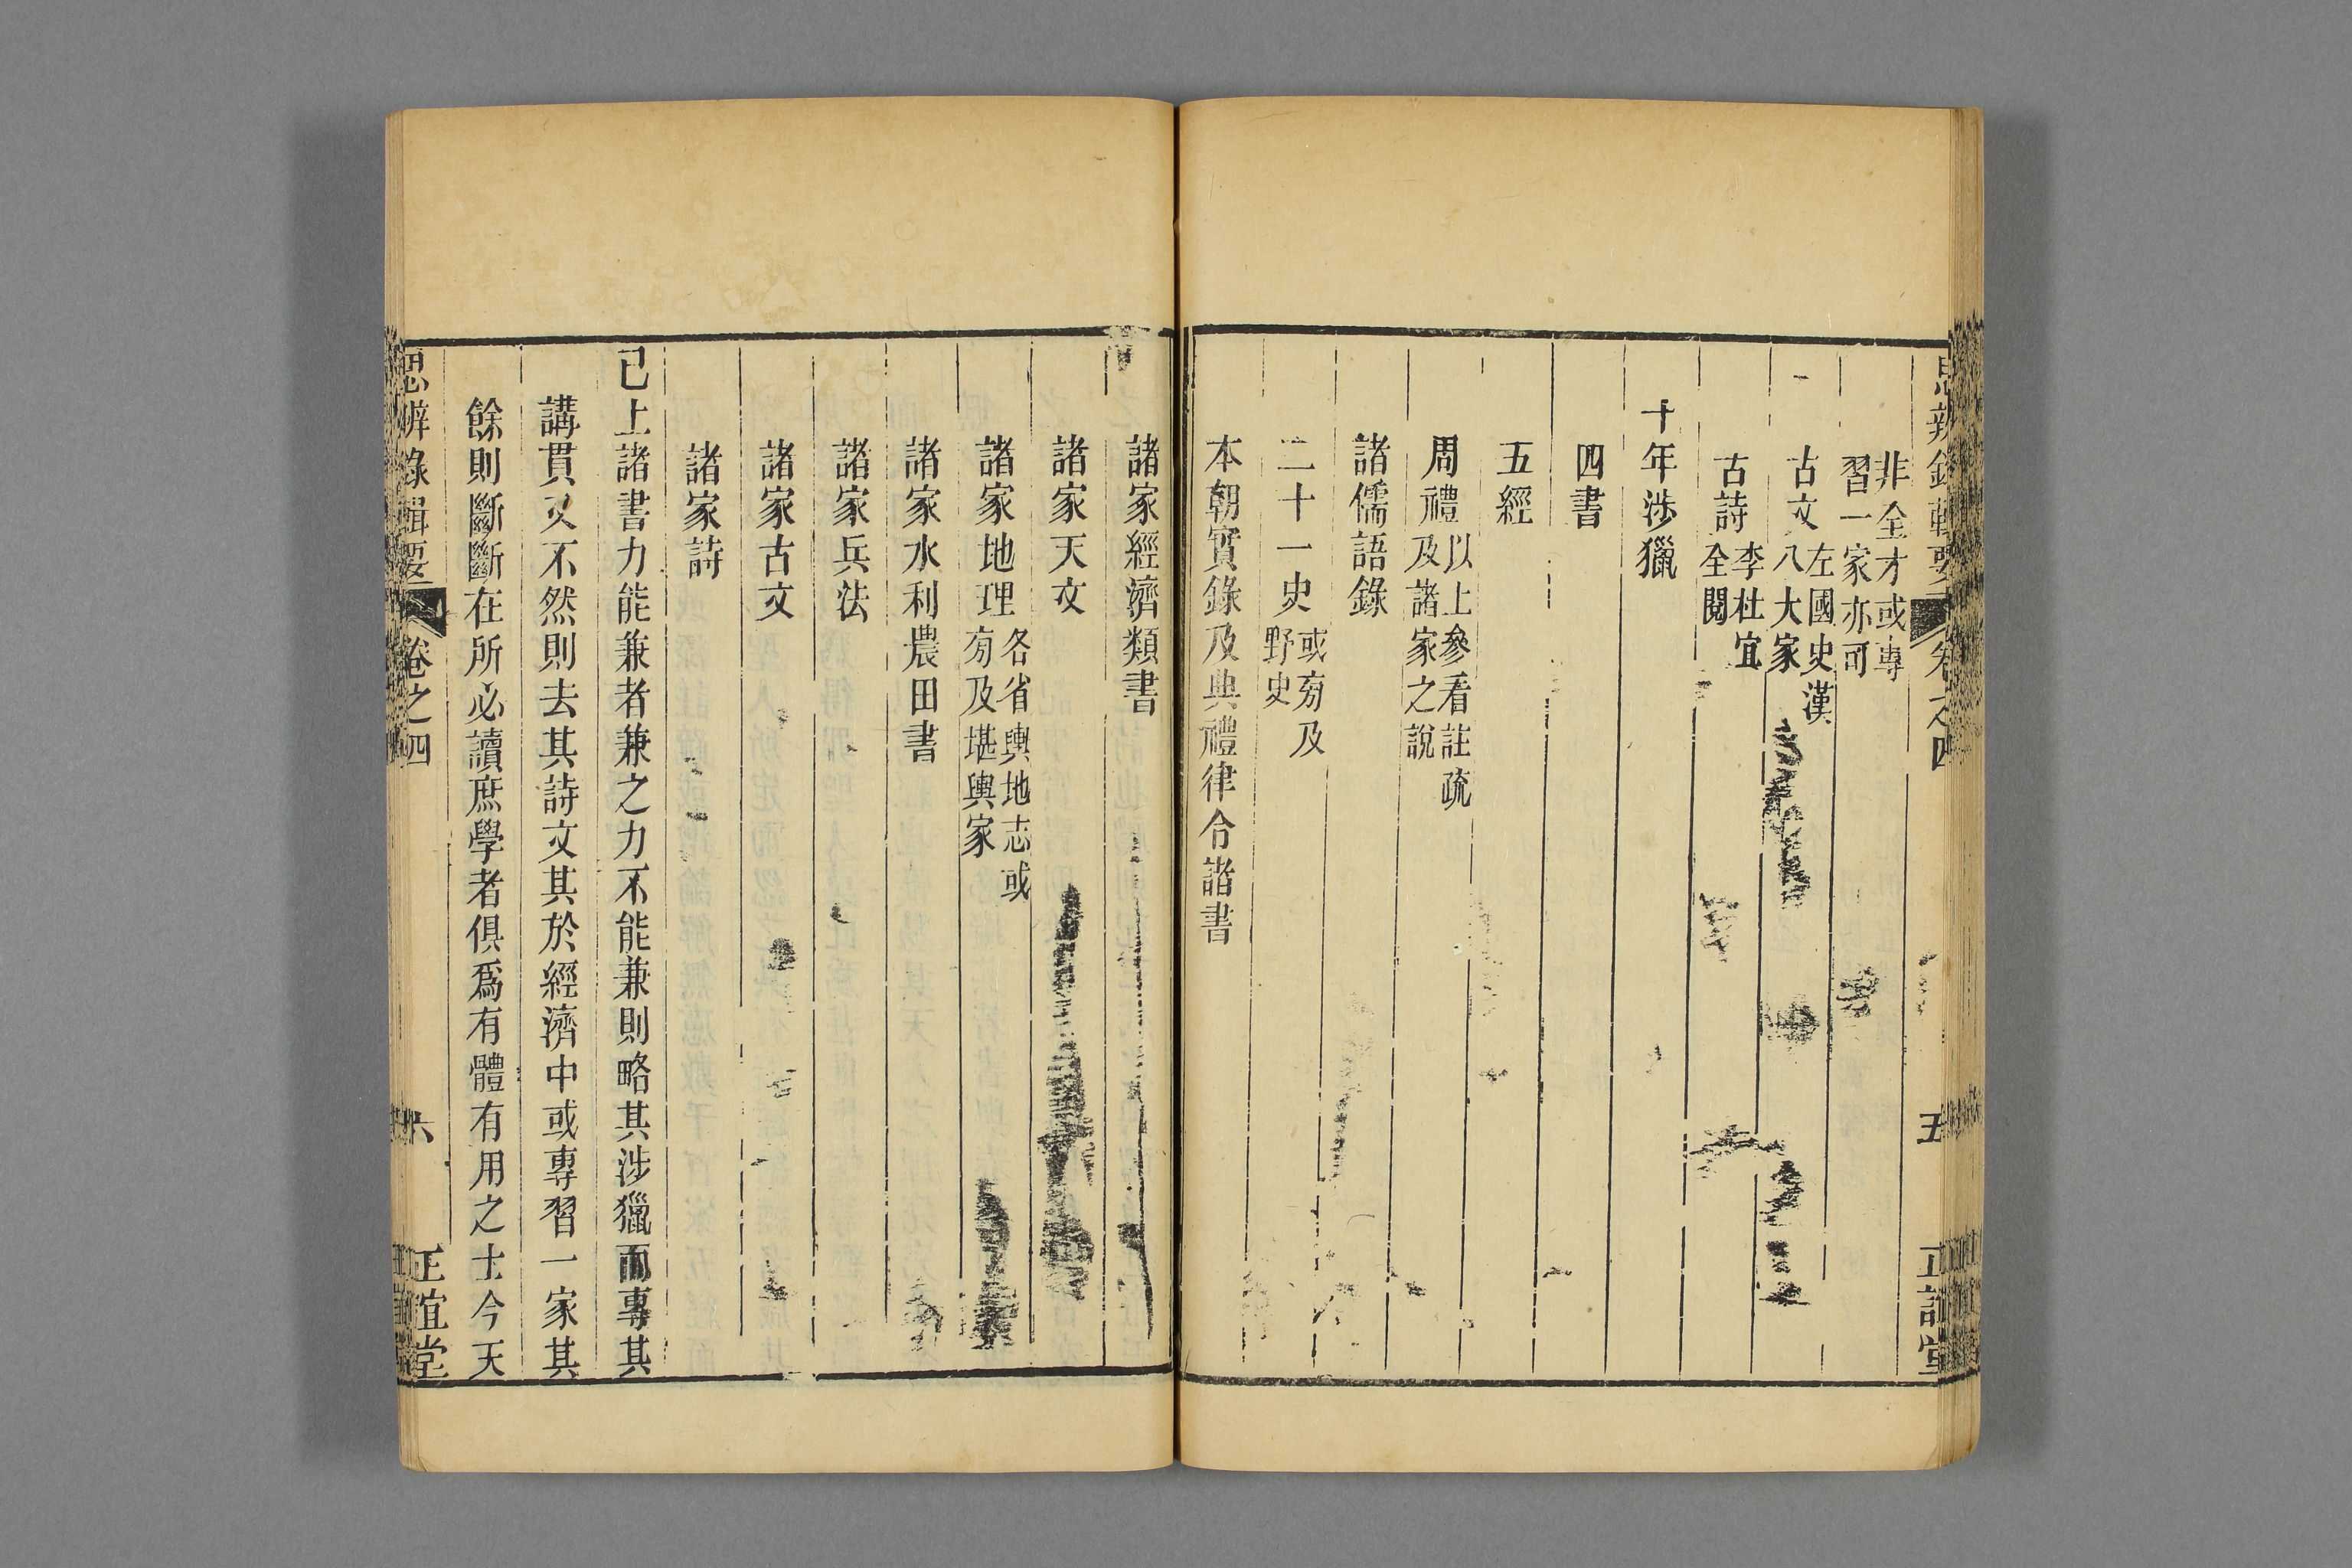 非全才或專
習一家亦可
古文左國史漢
八大家
古詩李杜宜
全閱
十年涉獵
四書
五經
周禮以上參看註疏
及諸家之說
諸儒語錄
二十一史或旁及
野史
本朝實錄及典禮律令諸書
諸家經濟類書
諸家天文
諸家地理各省輿地志或
旁及堪輿家
諸家水利農田書
諸家兵法
諸家古文
諸家詩
已上諸書力能兼者兼之力不能兼則略其涉獵而專其
講貫又不然則去其詩文其於經濟中或專習一家其
餘則斷斷在所必讀庶學者俱爲有體有用之士今天
思辨錄輯要 卷之四 六 正誼堂